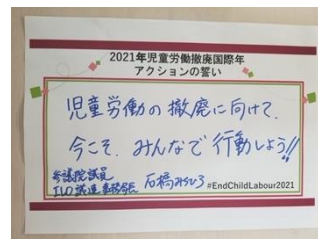 2021年児童労働撤廃国際年
アクションの誓い
児童労働の撤廃に向けて、
今こそ、みんなで行動しよう!!
参議院議員
ILO議連事務局長 石橋みちひろ
#EndChildLabour2021